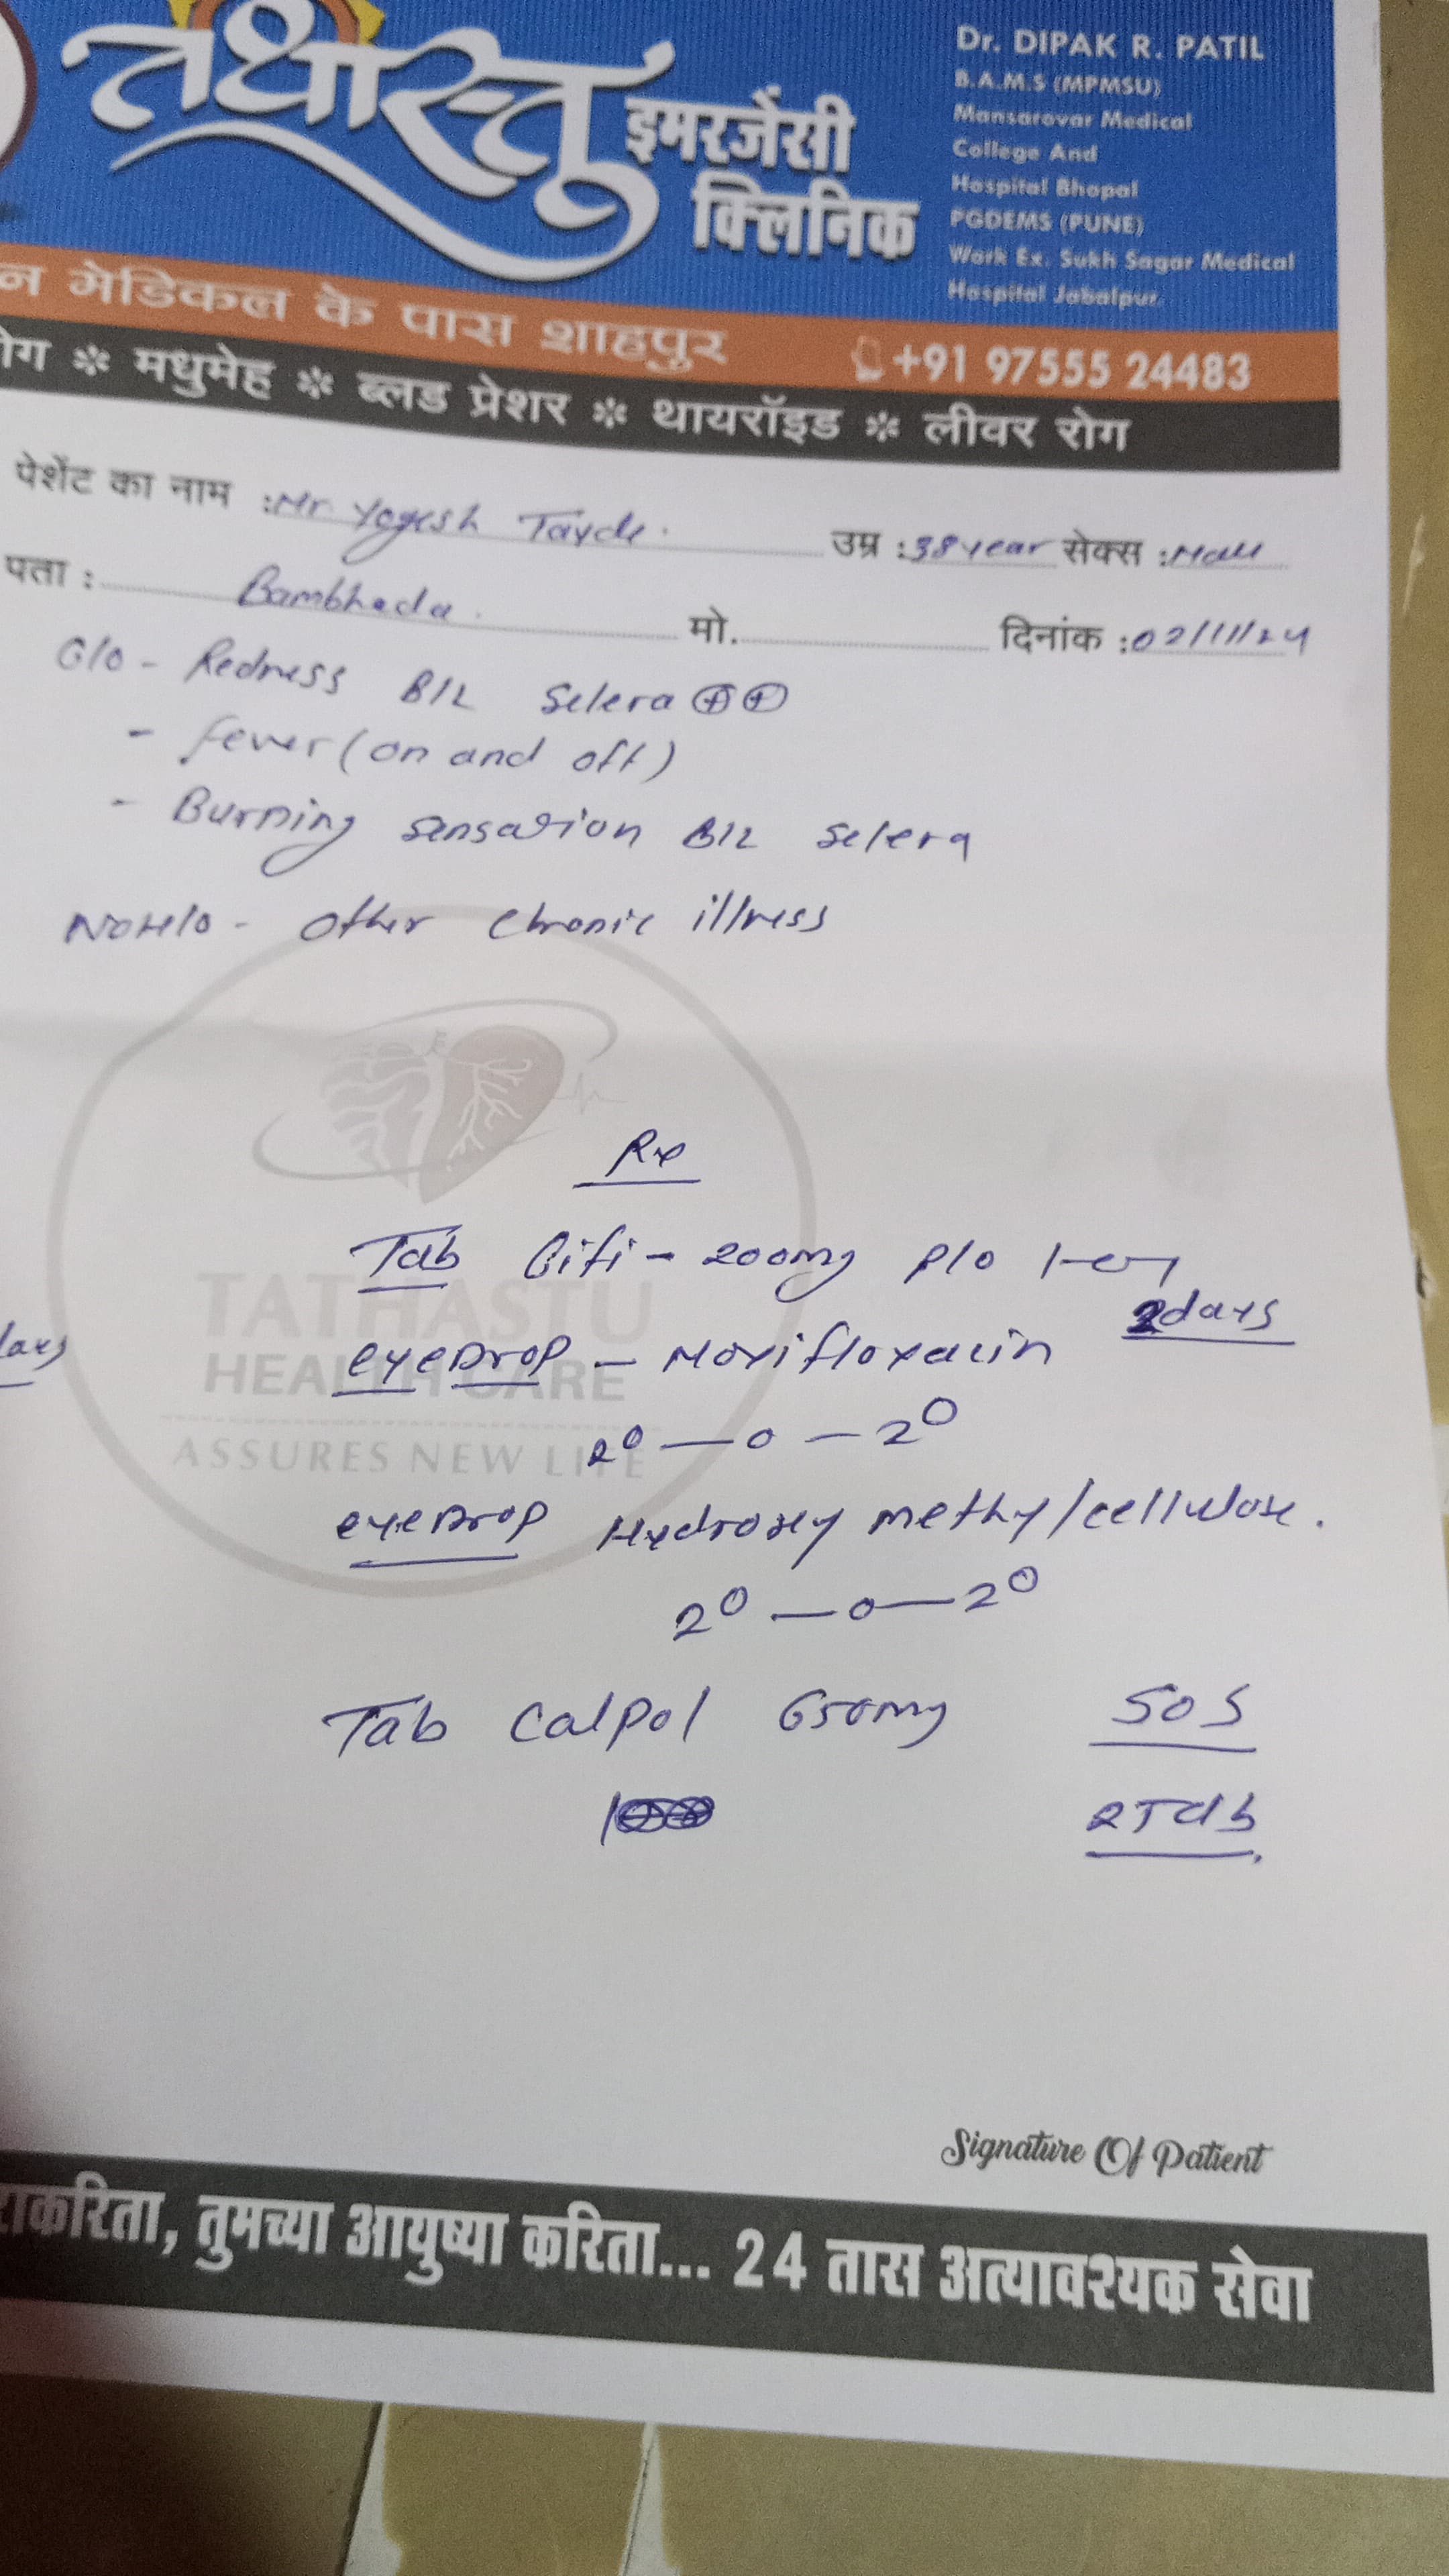 तथास्तु
इमरजेंसी
क्लिनिक
Dr. DIPAK R. PATIL
B.A.M.S (MPMSU)
Mansarovar Medical
College And
Hospital Bhopal
PGDEMS (PUNE)
Work Ex. Sukh Sagar Medical
Hospital Jabalpur.
न मेडिकल के पास शाहपुर +91 97555 24483
ोग * मधुमेह * ब्लड प्रेशर * थायरॉइड * लीवर रोग
पेशेंट का नाम : Mr Yogesh Tayde. उम्र : 38 year सेक्स : Male
पता : Bambhada. मो. दिनांक : 02/11/24
C/o - Redness B/L Sclera ⊕⊕
- fever (on and off)
- Burning sensation B/L Sclera
No H/o - Other chronic illness
Rx
Tab Gifi - 200mg P/o 1-0-1
2days
eyeDrop - Moxifloxacin
2° — 0 — 2°
eyeDrop Hydroxy methyl cellulose.
2° — 0 — 2°
Tab Calpol 650mg SOS
2Tab.
TATHASTU
HEALTH CARE
ASSURES NEW LIFE
Signature Of Patient
तुमच्या आयुष्या करिता... 24 तास अत्यावश्यक सेवा